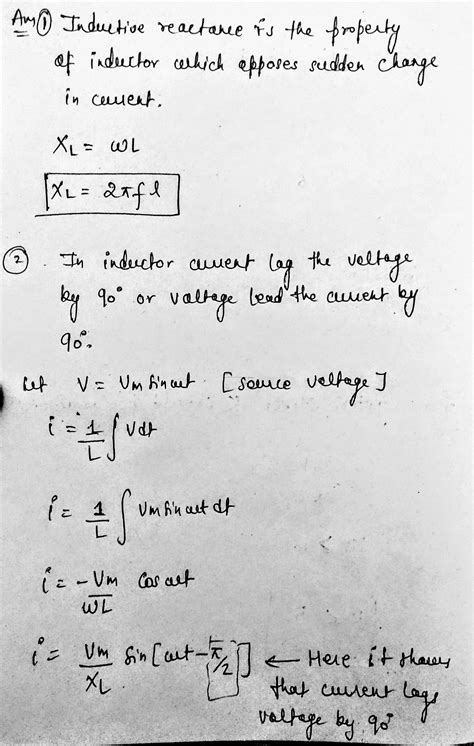 Ans ① Inductive reactance is the property
of inductor which opposes sudden change
in current.
X_L = ωL
X_L = 2πfl
② . In inductor current lag the voltage
by 90° or voltage lead the current by
90°.
Let V = Vm sinωt [source voltage]
i = 1/L ∫ Vdt
i = 1/L ∫ Vm sinωt dt
i = -Vm/ωL cosωt
i = Vm/X_L sin[ωt - π/2] ← Here it shows
that current lags
voltage by 90°